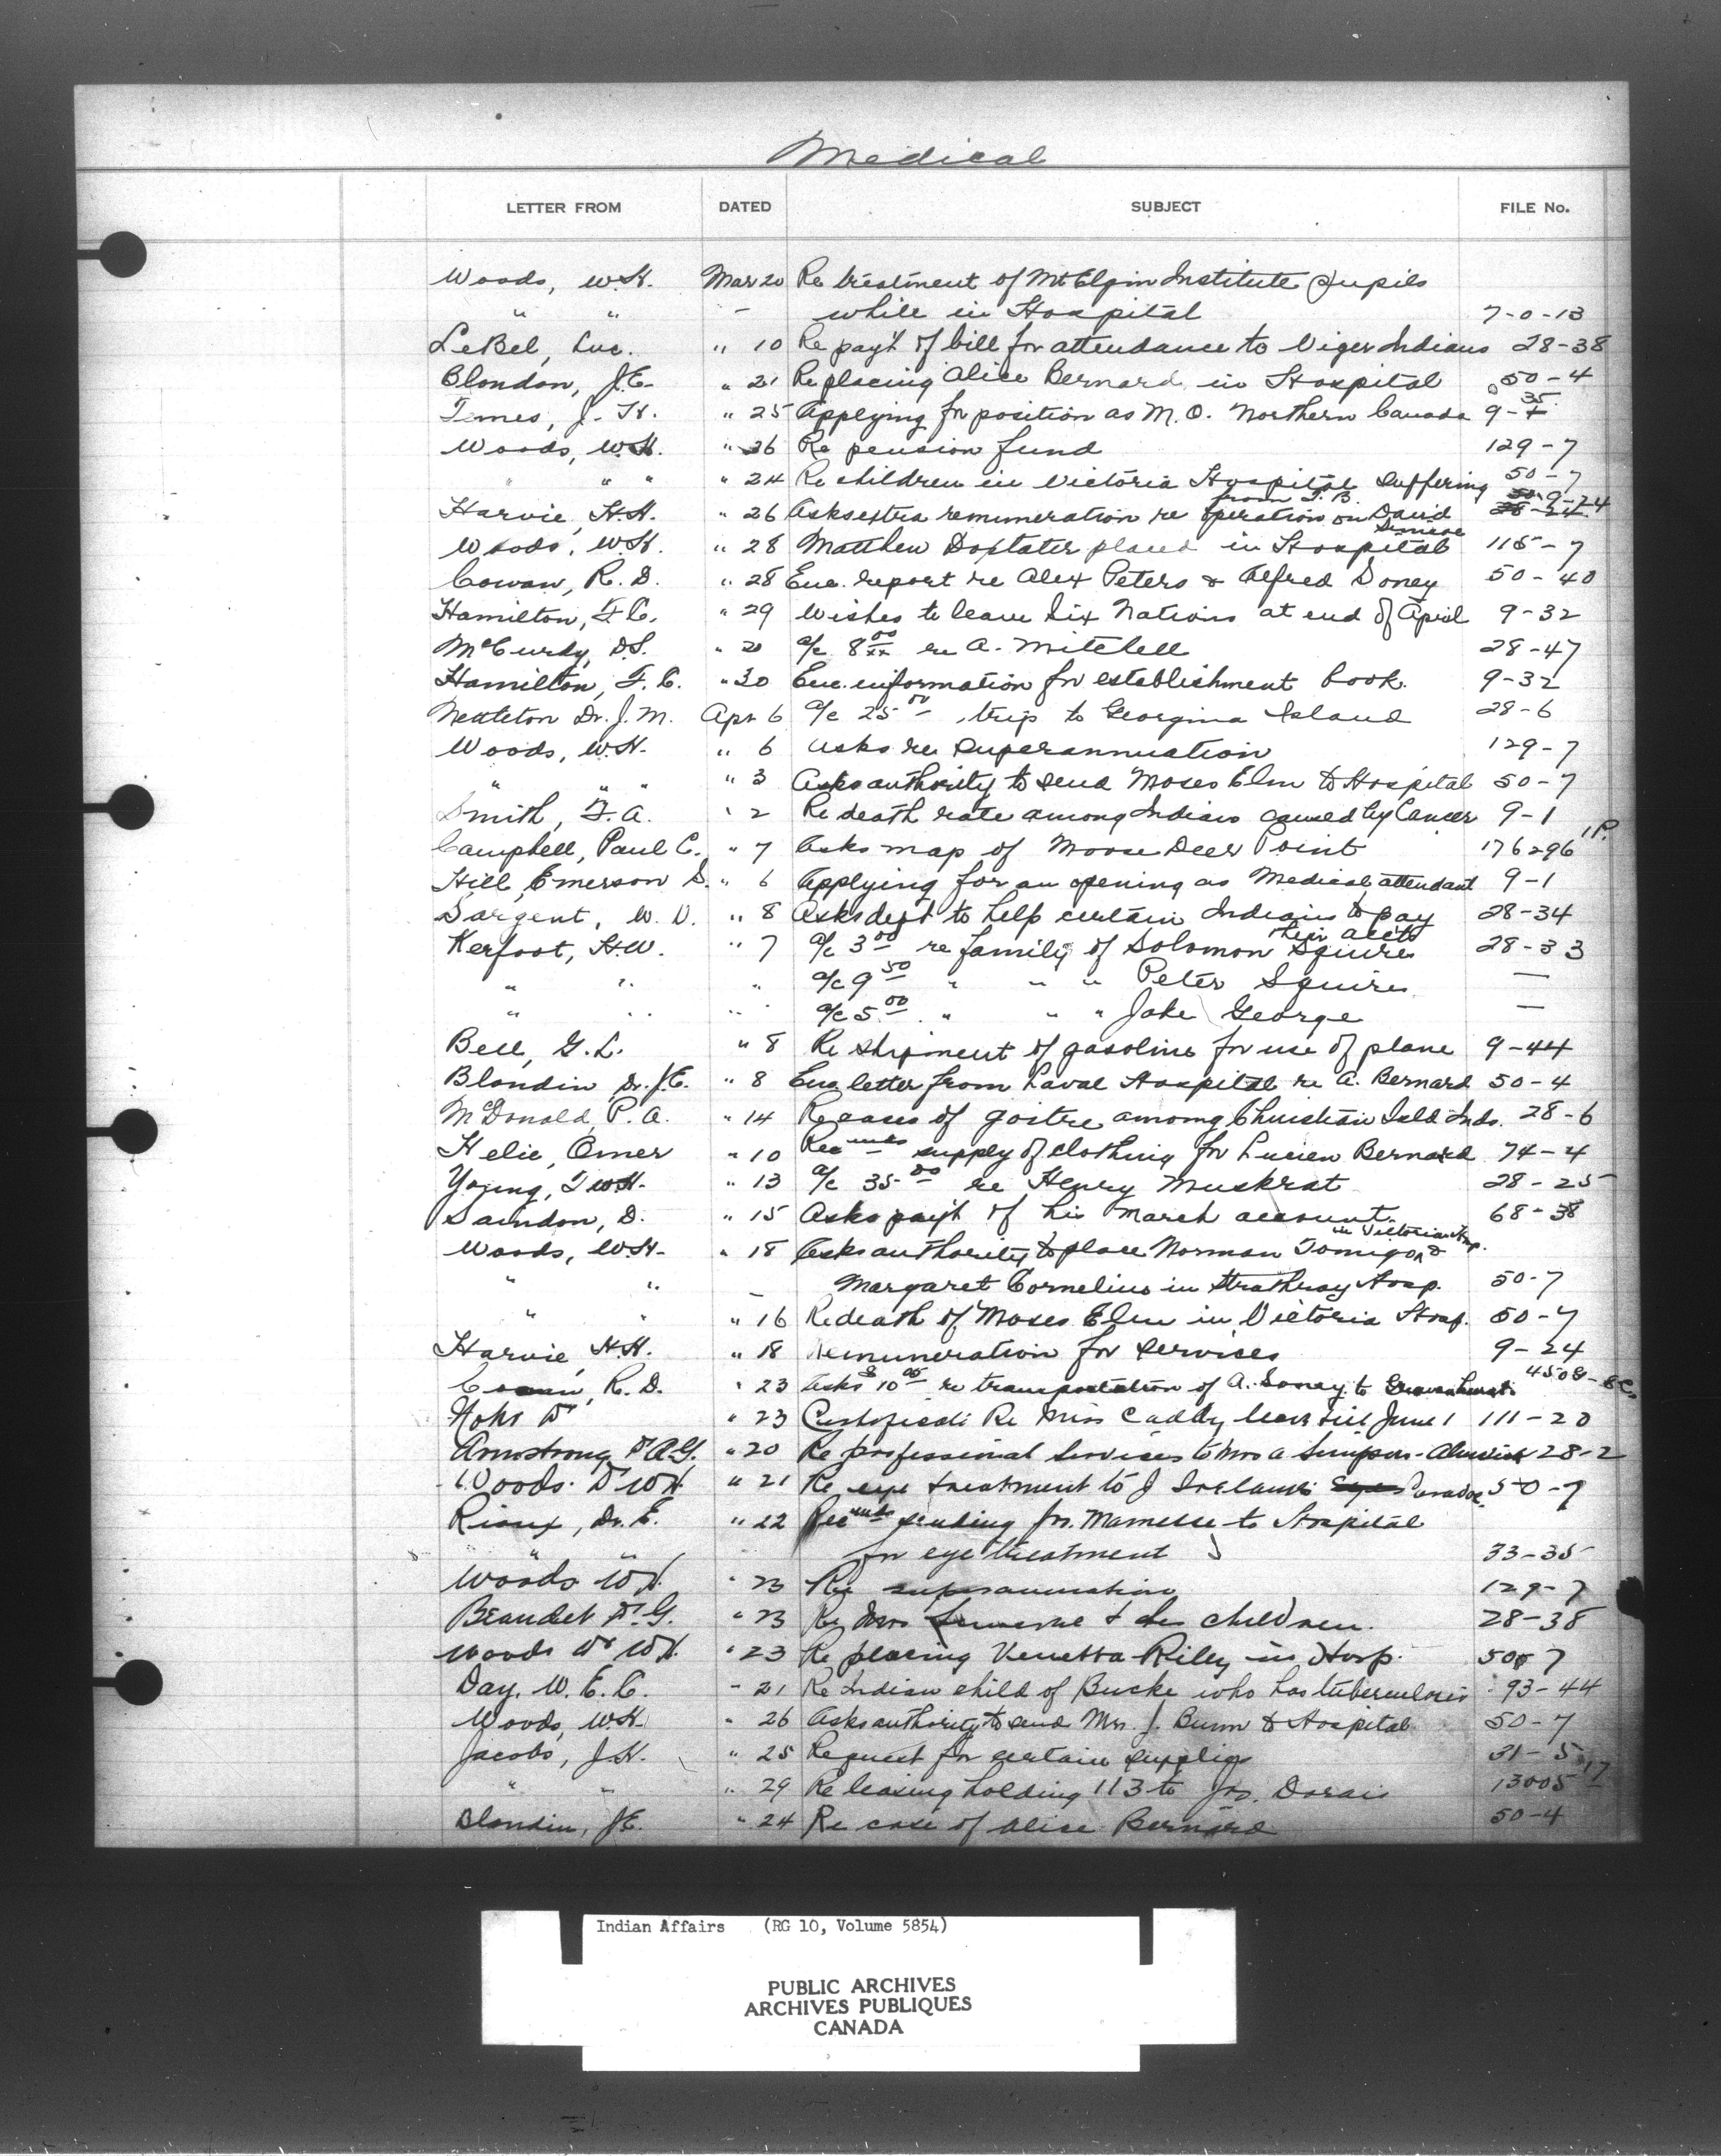 Medical
LETTER FROM DATED SUBJECT FILE No.
Woods, W.H. Mar 20 Re treatment of Mt Elgin Institute pupils
" " – while in Hospital 7-0-13
LeBel, Luc. " 10 Re pay't of bill for attendance to Viger Indians 28-38
Blondon, J.E. " 21 Re placing Alice Bernard in Hospital 50-4
J. H. " 25 Applying for position as M.O. Northern Canada 9-35
Woods, W.H. " 26 Re pension fund 129-7
" " " " 24 Re children in Victoria Hospital suffering 50-7
from T.B.
Harvie, H.H. " 26 Asks extra remuneration re operation on David 9-24
Woods, W.H. " 28 Matthew Doxtater placed in Hospital 115-7
Cowan, R.D. " 28 Enc. report re Alex Peters & Alfred Soney 50-40
Hamilton, F.C. " 29 Wishes to leave Six Nations at end of April 9-32
McCurdy, D.S. " 20 a/c 8 00/xx re A. Mitchell 28-47
Hamilton, F.C. " 30 Enc. information for establishment book. 9-32
Nettleton Dr. J.M. Apr 6 a/c 25 00 , trip to Georgina Island 28-6
Woods, W.H. " 6 Asks re superannuation 129-7
" " " " 3 Asks authority to send Moses Elm to Hospital 50-7
Smith, F.A. " 2 Re death rate among Indians caused by Cancer 9-1
Campbell, Paul C. " 7 Asks map of Moose Deer Point 176296 1P.
Hill, Emerson S. " 6 Applying for an opening as Medical attendant 9-1
Sargent, W.D. " 8 Asks dept to help certain Indians to pay 28-34
their accts
Kerfoot, H.W. " 7 a/c 3 00 re family of Solomon Squires 28-33
" " " a/c 9 50 " " " Peter Squires —
" " " a/c 5 00 " " " Jake George —
Bell, G.L. " 8 Re shipment of gasoline for use of plane 9-44
Blondin, Dr. J.E. " 8 Enc letter from Laval Hospital re A. Bernard 50-4
McDonald, P.A. " 14 Re cases of goitre among Christian Isld Inds. 28-6
Helie, Omer " 10 Recmds supply of clothing for Lucien Bernard 74-4
Young, T.W.H. " 13 a/c 35 00 re Henry Muskrat 28-25
Saindon, D. " 15 Asks pay't of his March account 68-38
in Victoria Hosp.
Woods, W.H. " 18 Asks authority to place Norman Tomigo &
" " – Margaret Cornelius in Strathroy Hosp. 50-7
" " " 16 Re death of Moses Elm in Victoria Hosp. 50-7
Harvie, H.H. " 18 Remuneration for services 9-24
R.D. " 23 Asks $10 00 re transportation of A. Soney to
" 23 Re Miss Caddy leave till June 1 111-20
Armstrong Dr A.G. " 20 Re professional Services to Mrs A Simpson - Alnwick 28-2
Woods Dr W.H. " 21 Re eye treatment to J Caradoc 50-7
Rioux, Dr. E. " 22 Recmds sending to Hospital
" " for eye treatment 33-35
Woods W.H. " 23 Re superannuation 129-7
Beaudet Dr G. " 23 Re Mrs & children. 28-38
Woods Dr W.H. " 23 Re placing Venetta Riley in Hosp. 50-7
Day, W.E.C. " 21 Re Indian child of Bucke who has tuberculosis 93-44
Woods, W.H. " 26 Asks authority to send Mrs. J. Bunn to Hospital 50-7
Jacobs, J.H. " 25 Request for certain supplies 31-5
" " " 29 Re leasing holding 113 to Jos. 13005
Blondin, J.E. " 24 Re case of Alice Bernard 50-4
Indian Affairs (RG 10, Volume 5854)
PUBLIC ARCHIVES
ARCHIVES PUBLIQUES
CANADA